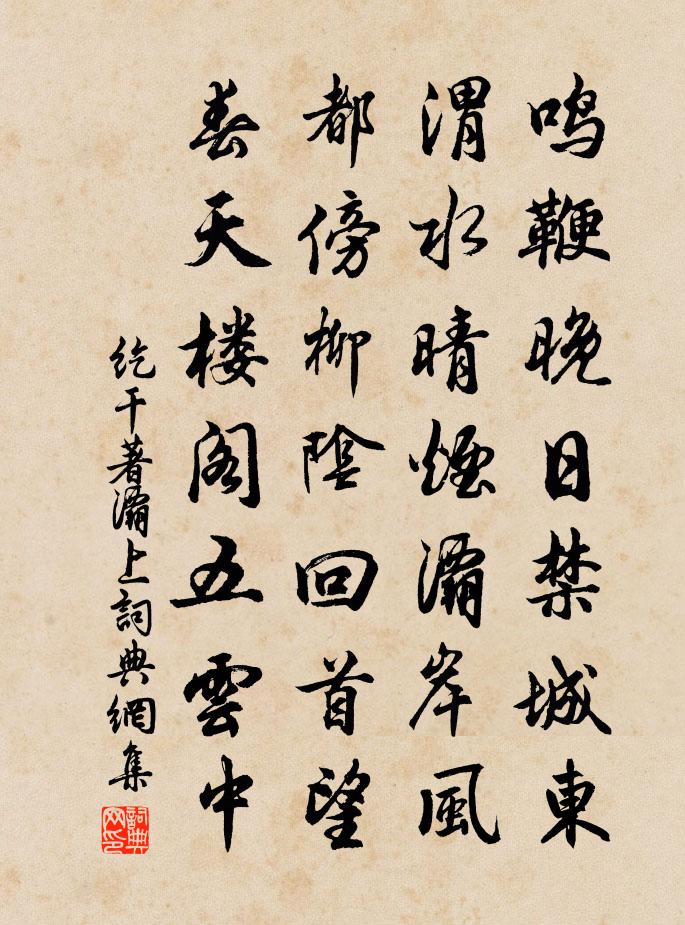 鸣鞭晚日禁城東
渭水晴煙灞岸風
都傍柳陰回首望
春天楼阁五雲中
紇干著灞上詞典網集
詞典网印